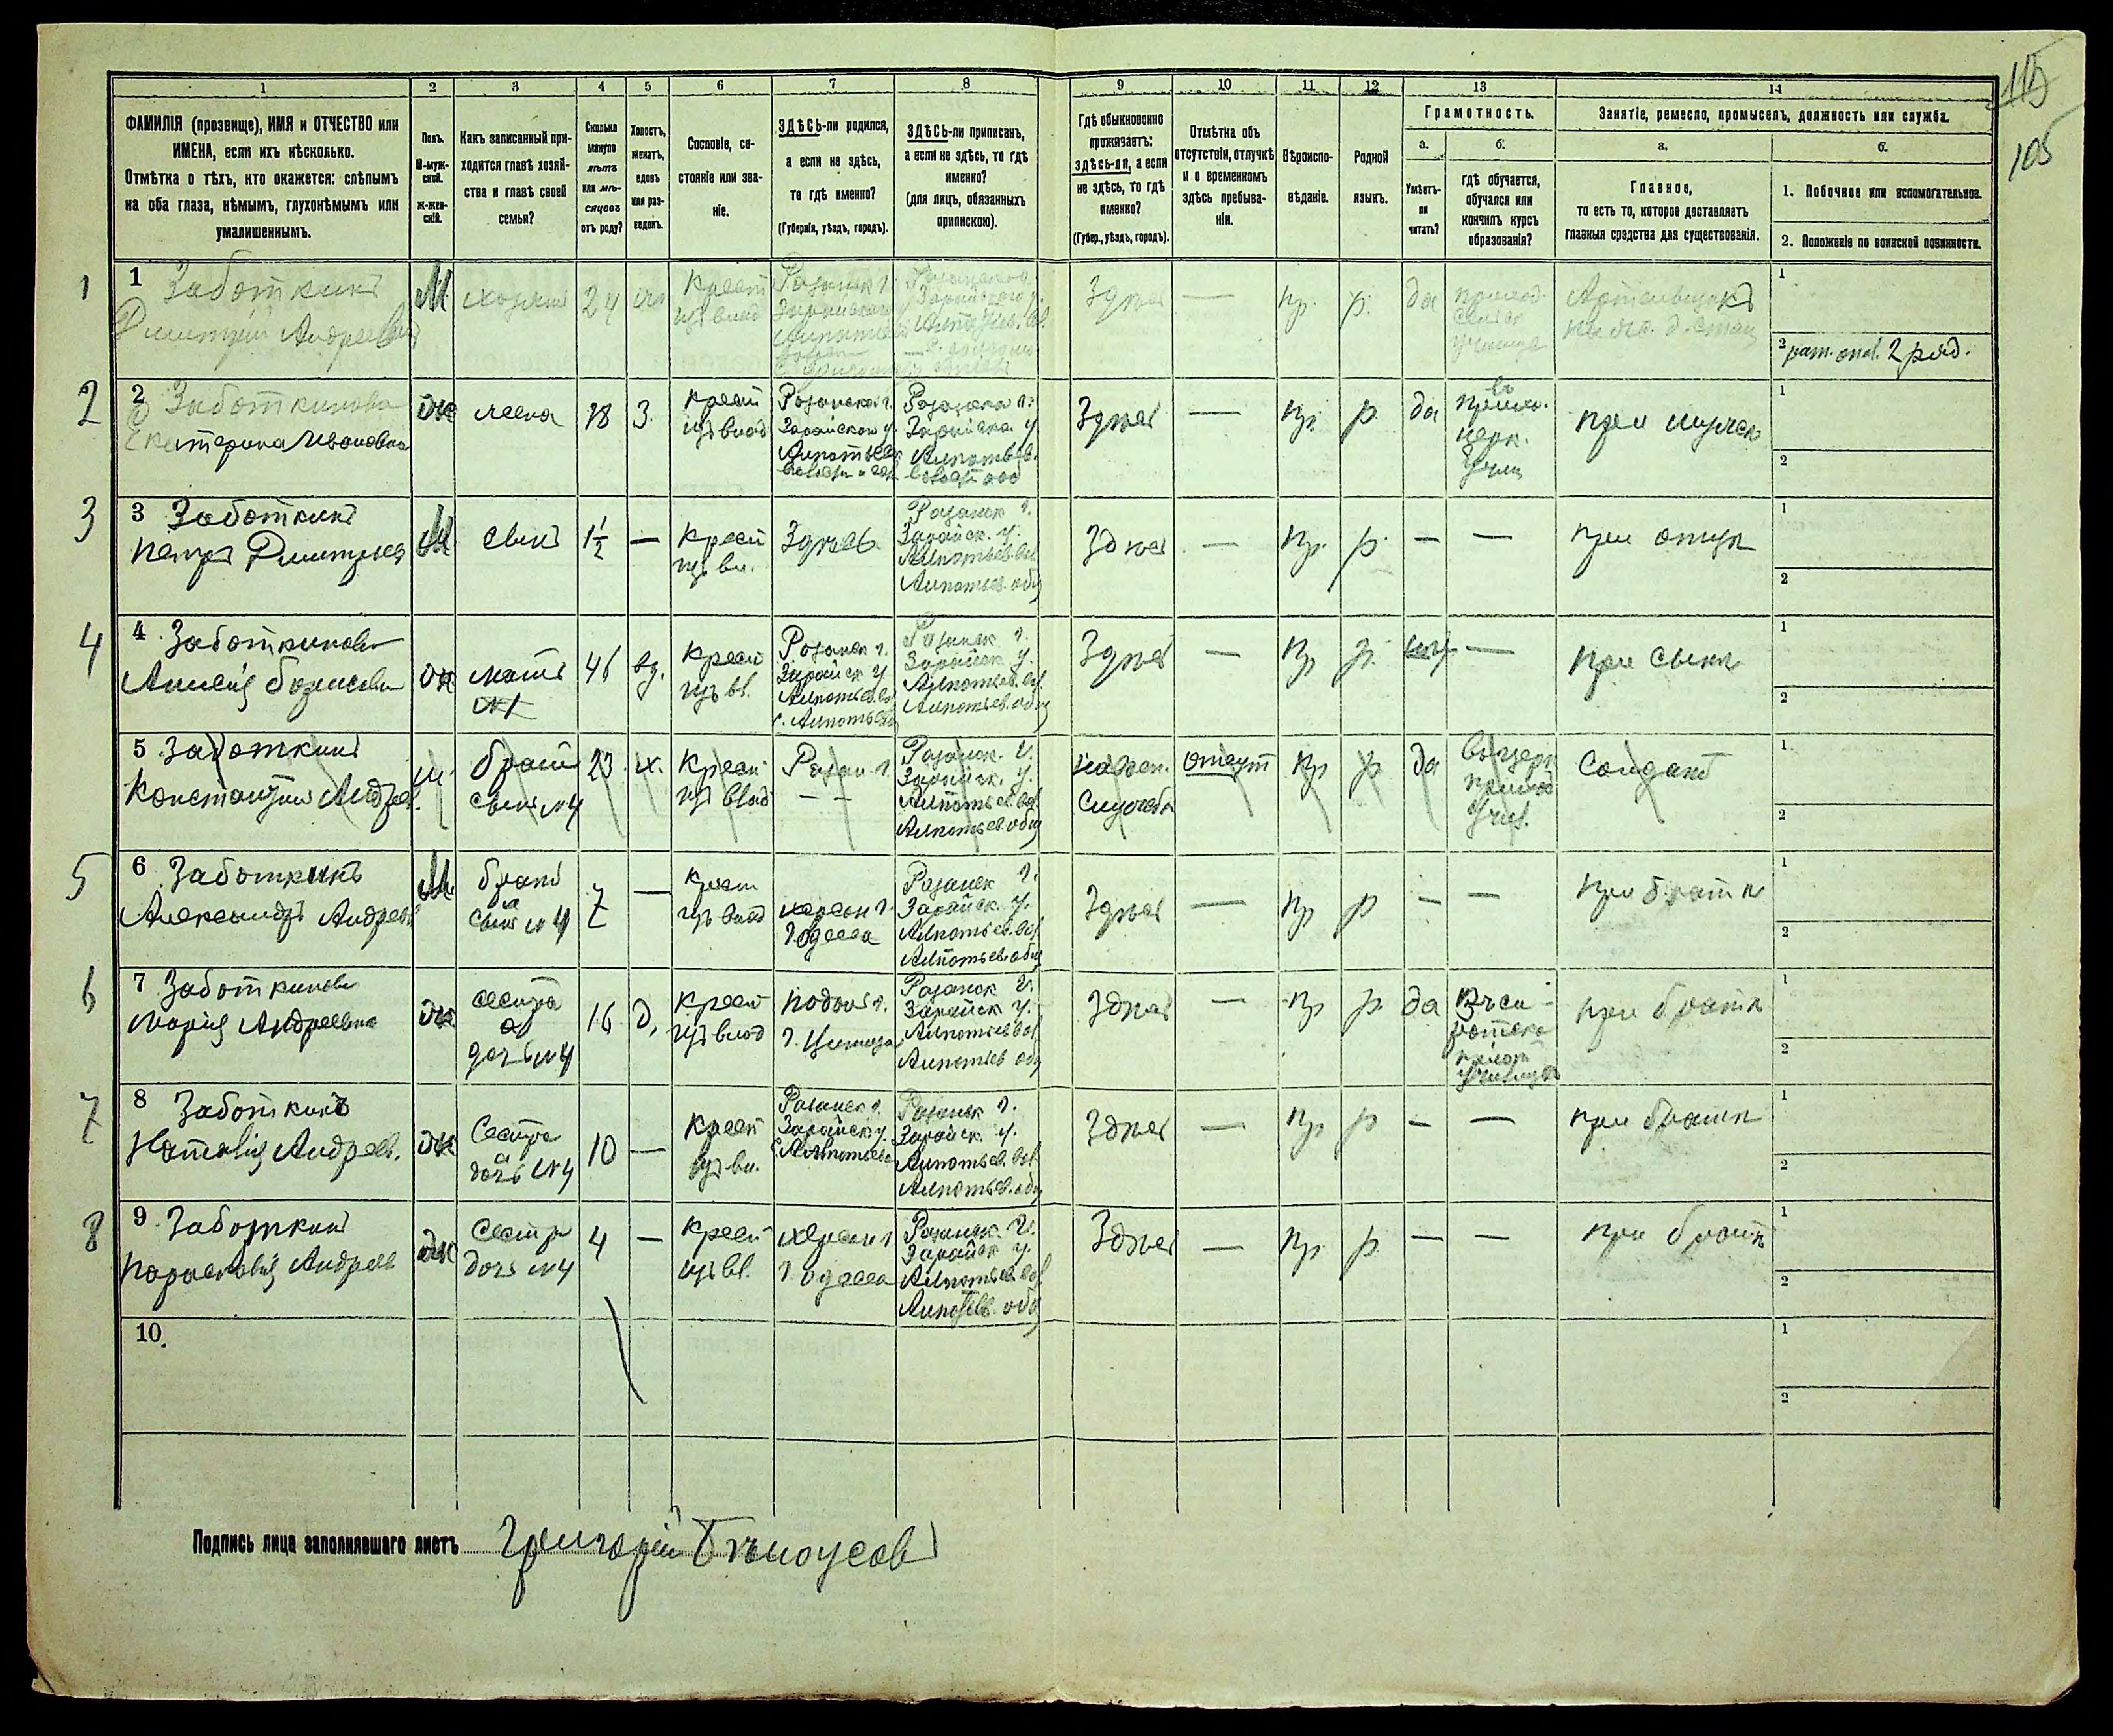 115
105
1 2 3 4 5 6 7 8 9 10 11 12 13 14
ФАМИЛІЯ (прозвище), ИМЯ и ОТЧЕСТВО или
ИМЕНА, если ихъ нѣсколько.
Отмѣтка о тѣхъ, кто окажется: слѣпымъ
на оба глаза, нѣмымъ, глухонѣмымъ или
умалишеннымъ.
Полъ.
М-муж-
ской.
ж-жен-
скій.
Какъ записанный при-
ходится главѣ хозяй-
ства и главѣ своей
семьи?
Сколько
минуло
лѣтъ
или мѣ-
сяцевъ
отъ роду?
Холостъ,
женатъ,
вдовъ
или раз-
веденъ.
Сословіе, со-
стояніе или зва-
ніе.
ЗДѢСЬ-ли родился,
а если не здѣсь,
то гдѣ именно?
(Губернія, уѣздъ, городъ).
ЗДѢСЬ-ли приписанъ,
а если не здѣсь, то гдѣ
именно?
(для лицъ, обязанныхъ
припискою).
Гдѣ обыкновенно
проживаетъ:
здѣсь-ли, а если
не здѣсь, то гдѣ
именно?
(Губер., уѣздъ, городъ).
Отмѣтка объ
отсутствіи, отлучкѣ
и о временномъ
здѣсь пребыва-
ніи.
Вѣроиспо-
вѣданіе.
Родной
языкъ.
Грамотность.
а.
Умѣетъ-
ли
читать?
б.
гдѣ обучается,
обучался или
кончилъ курсъ
образованія?
Занятіе, ремесло, промыселъ, должность или служба.
а.
Главное,
то есть то, которое доставляетъ
главныя средства для существованія.
б.
1. Побочное или вспомогательное.
2. Положеніе по воинской повинности.
1
1 Заботкинъ
Дмитрій Андреевъ
М
хозяинъ
24
Крест
изъ влад
Рязанск г.
Здѣсь
—
пр.
р.
да
Артельщикъ
1
2 рат. опол. 2 разд.
2
2 Заботкинова
Екатерина Ивановна
ж
жена
18
З.
Крест
изъ влад
Рязанской г.
Зарайскаго у.
Рязанска г.
Зарайска. у
Здѣсь
—
пр.
р.
да
въ
прихо.
церк.
Учил
при мужѣ
1
2
3
3 Заботкинъ
Петръ Дмитріевъ
М
сынъ
1 1/2
—
Крест
изъ вл.
Здѣсь
Рязанск г.
Зарайск. у.
Алпатьев. вол
Алпатьев. общ
Здѣсь
—
Пр.
р.
—
—
при отцѣ
1
2
4
4 Заботкинова
ж
мать
№1
46
вд.
Крест
изъ вл.
Рязанск г.
Зарайск у
Алпатьев. вол
с. Алпатьево
Рязанск г.
Зарайск у.
Алпатьев. вол.
Алпатьев. общ
Здѣсь
—
Пр
р.
—
при сынѣ
1
2
5 Заботкинъ
Константинъ Андрее.
М.
братъ
сынъ №4
23
х.
Крест
изъ влад
Рязан. г.
— —
Рязанск. г.
Зарайск. у.
Алпатьев. вол
Алпатьев. общ
отсут
Пр
р
да
Солдатъ
1
2
5
6 Заботкинъ
Александръ Андреев
М
братъ
а
сынъ №4
7
—
Крест
изъ влад
Херсон г.
г. Одесса
Рязанск г.
Зарайск. у.
Алпатьев. вол
Алпатьев. общ
Здѣсь
—
пр
р
—
—
при братѣ
1
2
6
7 Заботкинова
Марія Андреевна
ж
сестра
а
дочь №4
16
д.
Крест
изъ влад
Подол г.
Рязанск г.
Зарайск у.
Алпатьев вол
Алпатьев общ
Здѣсь
—
пр
р
да
при братѣ
1
2
7
8 Заботкинъ
Наталія Андреев.
ж
Сестра
а
дочь №4
10
—
Крест
изъ вл.
Рязанск г.
Зарайск у.
с. Алпатьево
Рязанск г.
Зарайск у.
Алпатьев. вол
Алпатьев. общ
Здѣсь
—
Пр
р
—
—
при братѣ
1
2
8
9 Заботкинъ
Парасковія Андреев
ж
Сестра
дочь №4
4
—
Крест
изъ вл.
Херсон г
г. Одесса
Рязанск. г.
Зарайск у.
Алпатьев. вол
Алпатьев. общ
Здѣсь
—
Пр
р
—
—
при братѣ
1
2
10.
1
2
Подпись лица заполнявшаго листъ Григорій Бѣлоусовъ